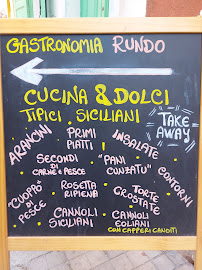 GASTRONOMIA RUNDO
CUCINA & DOLCI
TIPICI SICILIANI
TAKE
AWAY
ARANCINI
PRIMI
PIATTI
INSALATE
SECONDI
DI
CARNE E PESCE
"PANI
CUNZATU"
CONTORNI
"CUOPPO"
DI
PESCE
ROSETTA
RIPIENA
TORTE
CROSTATE
CANNOLI
SICILIANI
CANNOLI
EOLIANI
CON CAPPERI CANDITI